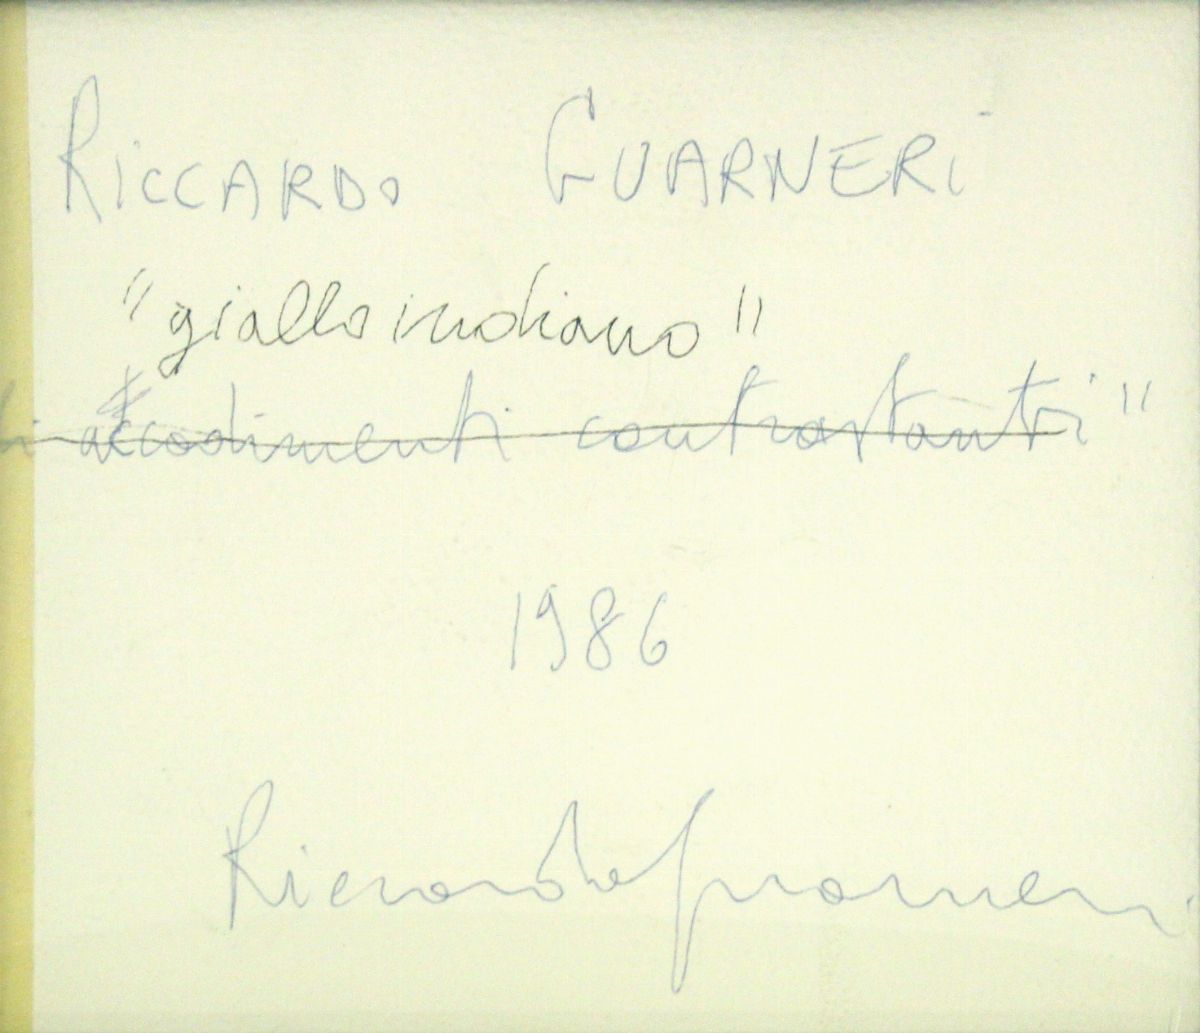 RICCARDO GUARNERI
"giallo indiano"
contrastanti"
1986
Riccardo Guarneri